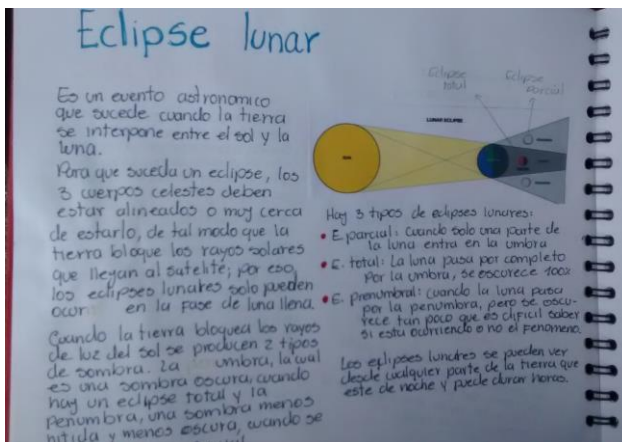 Eclipse lunar
Es un evento astronomico
que sucede cuando la tierra
se interpone entre el sol y la
luna.
Para que suceda un eclipse, los
3 cuerpos celestes deben
estar alineados o muy cerca
de estarlo, de tal modo que la
tierra bloque los rayos solares
que llegan al satelite; por eso,
los eclipses lunares solo pueden
ocur en la fase de luna llena.
Cuando la tierra bloquea los rayos
de luz del sol se producen 2 tipos
de sombra. La umbra, la cual
es una sombra oscura, cuando
hay un eclipse total y la
penumbra, una sombra menos
nitida y menos oscura, cuando se
Eclipse
total
Eclipse
parcial
LUNAR ECLIPSE
SUN
Hay 3 tipos de eclipses lunares:
• E. parcial: Cuando solo una parte de
la luna entra en la umbra
• E. total: La luna pasa por completo
por la umbra, se escurece 100%
• E. prenumbral: cuando la luna pasa
por la penumbra, pero se escu-
rece tan poco que es dificil saber
si esta ocurriendo o no el fenomeno.
Los eplipses lunares se pueden ver
desde cualquier parte de la tierra que
este de noche y puede durar horas.